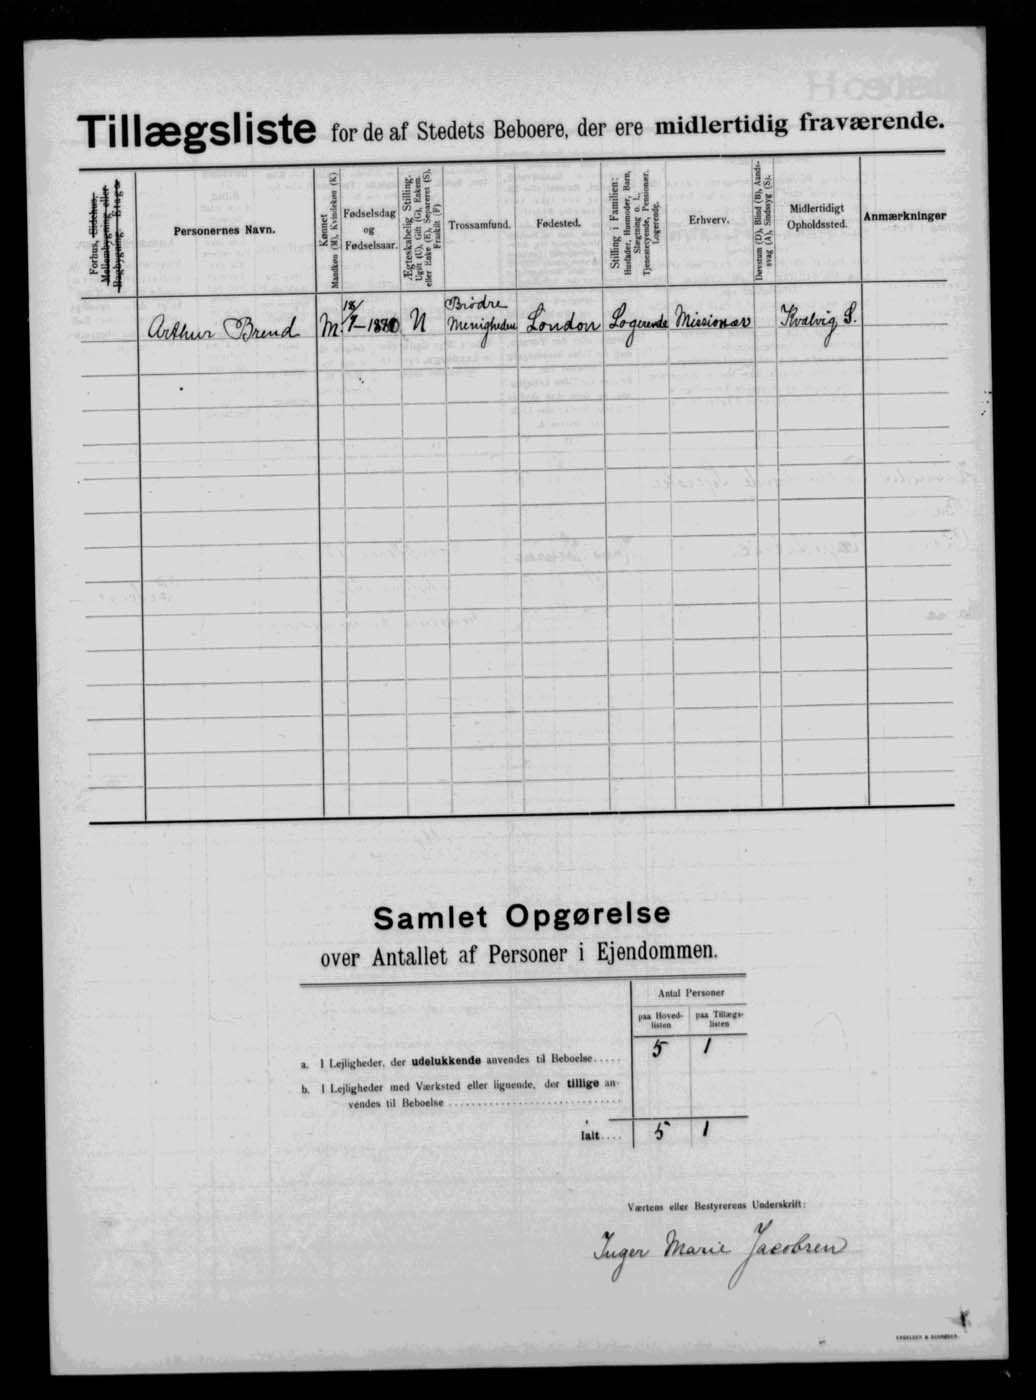 Tillægsliste for de af Stedets Beboere, der ere midlertidig fraværende.
Forhus, Sidehus, Mellembygning eller Bagbygning. Etage
Personernes Navn.
Kønnet
Mandkøn (M), Kvindekøn (K)
Fødselsdag
og
Fødselsaar.
Ægteskabelig Stilling.
Ugift (U), Gift (G), Enkem.
eller Enke (E), Separeret (S),
Fraskilt (F)
Trossamfund.
Fødested.
Stilling i Familien:
Husfader, Husmoder, Barn,
Slægtning o. l.,
Tjenestetyende, Pensionær,
Logerende.
Erhverv.
Døvstum (D), Blind (B), Aands-
svag (A), Sindssyg (S).
Midlertidigt
Opholdssted.
Anmærkninger
Arthur Brend M. 18/7-1880 U Brødre Menigheden London Logerende Missionær Kvalvig S.
Samlet Opgørelse
over Antallet af Personer i Ejendommen.
Antal Personer
paa Hoved-
listen
paa Tillægs-
listen
a. I Lejligheder, der udelukkende anvendes til Beboelse..... 5 1
b. I Lejligheder med Værksted eller lignende, der tillige an-
vendes til Beboelse
Ialt.... 5 1
Værtens eller Bestyrerens Underskrift:
Inger Marie Jacobsen